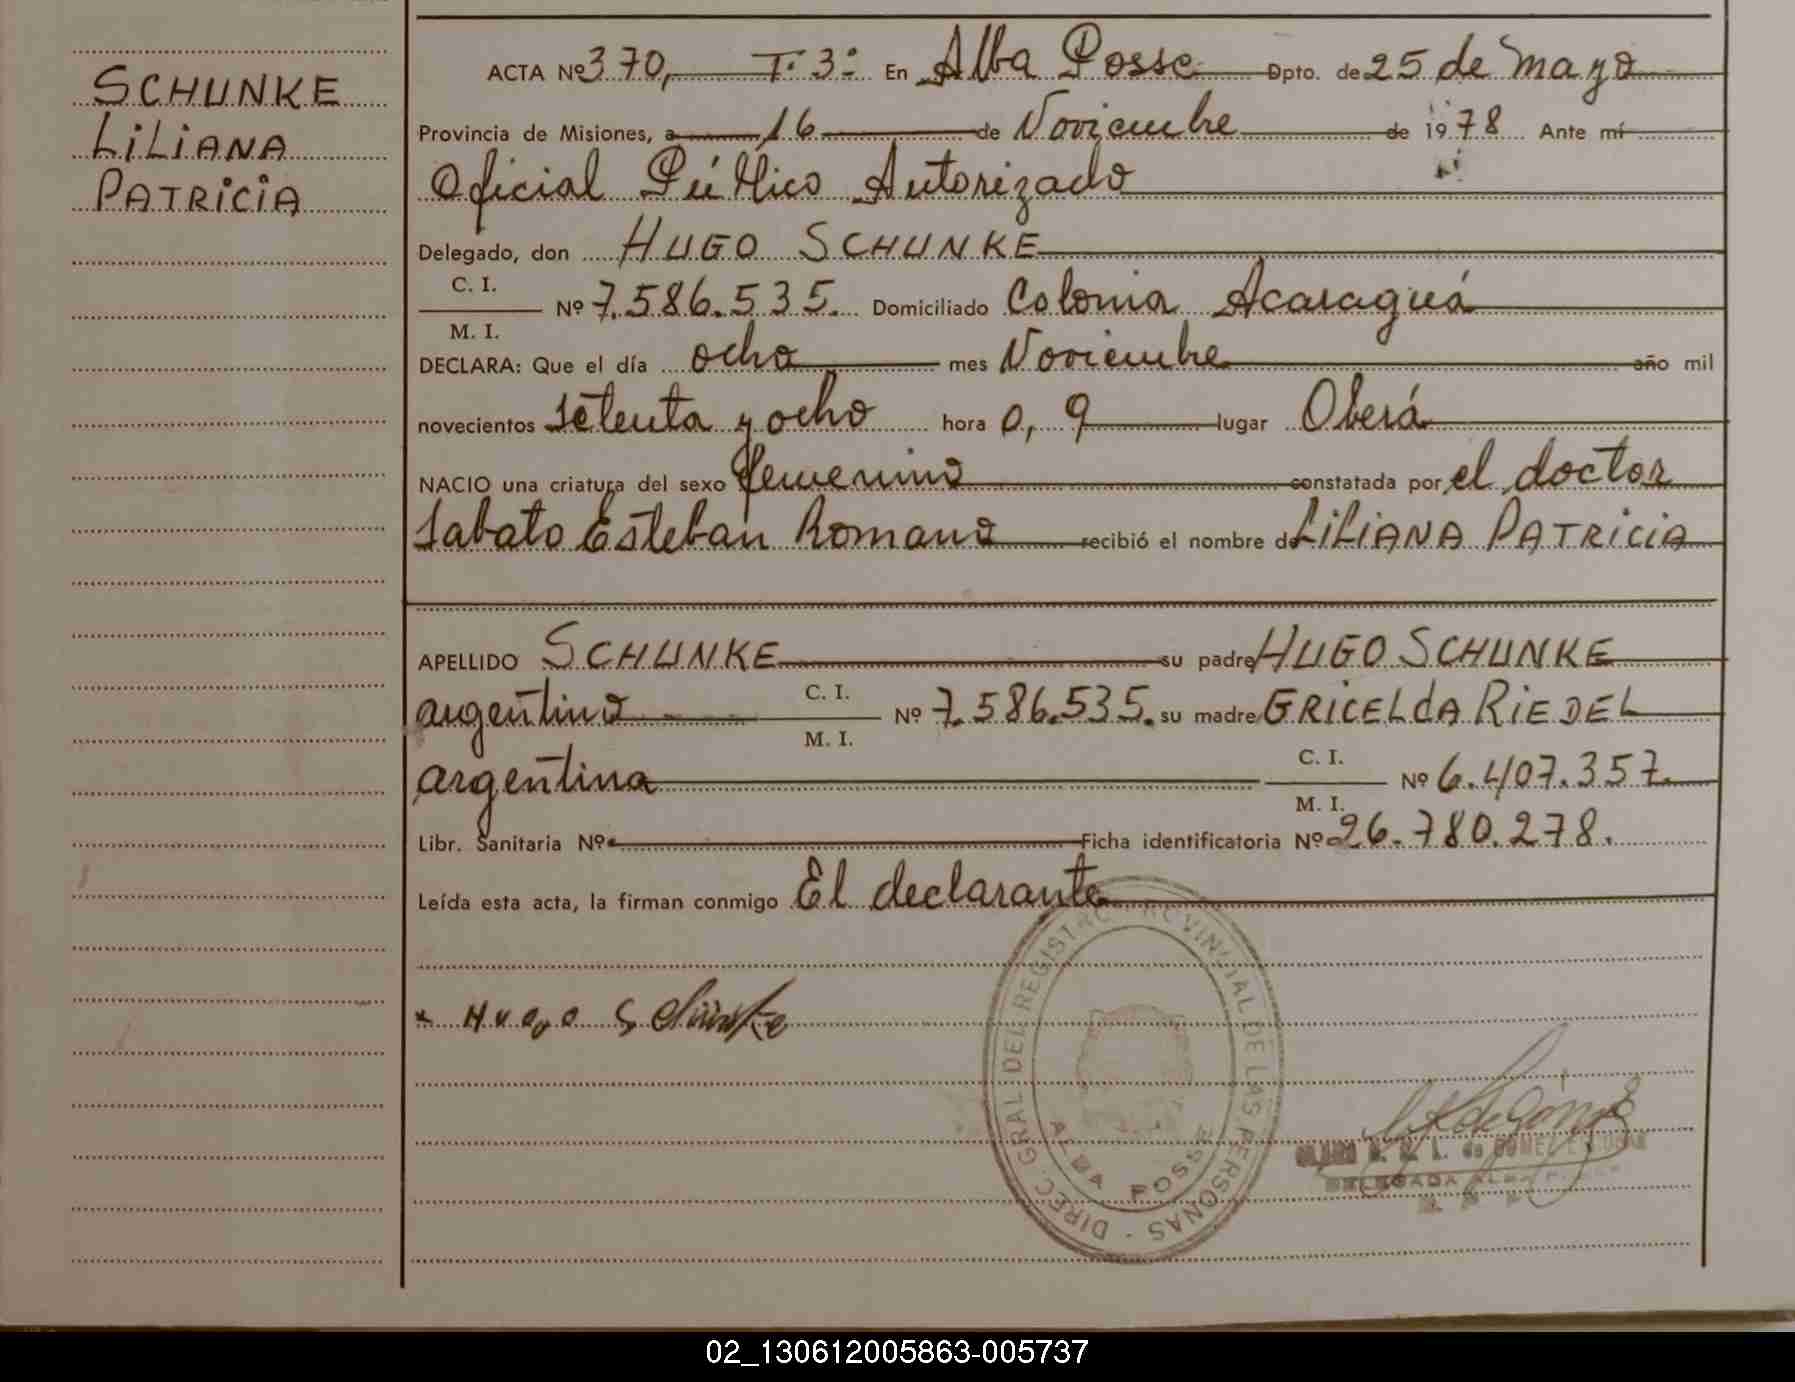 SCHUNKE
LiLiANA
PATRiCiA
ACTA Nº 370, T. 3º En Alba Posse Dpto. de 25 de Mayo
Provincia de Misiones, a 16 de Noviembre de 1978 Ante mí
Oficial Público Autorizado
Delegado, don HUGO SCHUNKE
C. I.
M. I.
Nº 7.586.535. Domiciliado Colonia Acaraguá
DECLARA: Que el día ocho mes Noviembre año mil
novecientos setenta y ocho hora 0,9 lugar Oberá
NACIO una criatura del sexo femenino constatada por el doctor
Sabato Esteban Romano recibió el nombre de LiLiANA PATRiCiA
APELLIDO SCHUNKE su padre HUGO SCHUNKE
argentino C. I. M. I. Nº 7.586.535. su madre GRICELdA RiEDEL
argentina C. I. M. I. Nº 6.407.357.
Libr. Sanitaria Nº Ficha identificatoria Nº 26.780.278.
Leída esta acta, la firman conmigo El declarante
x Hugo Schünke
DIREC. GRAL DEL REGISTRO PROVINCIAL DE LAS PERSONAS -
ALBA POSSE
DELEGADA
02_130612005863-005737